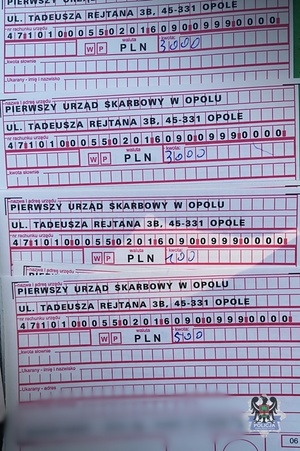 PIERWSZY URZĄD SKARBOWY W OPOLU
UL. TADEUSZA REJTANA 3B, 45-331 OPOLE
nr rachunku urzędu
47101000550201609009990000
waluta kwota
W P PLN 3000
kwota słownie
Ukarany - imię i nazwisko
nazwa i adres urzędu
PIERWSZY URZĄD SKARBOWY W OPOLU
UL. TADEUSZA REJTANA 3B, 45-331 OPOLE
nr rachunku urzędu
47101000550201609009990000
waluta kwota:
W P PLN 3000
kwota słownie
nazwa i adres urzędu
PIERWSZY URZĄD SKARBOWY W OPOLU
UL. TADEUSZA REJTANA 3B, 45-331 OPOLE
nr rachunku urzędu
47101000550201609009990000
waluta kwota:
W P PLN 100
nazwa i adres urzędu
PIERWSZY URZĄD SKARBOWY W OPOLU
UL. TADEUSZA REJTANA 3B, 45-331 OPOLE
nr rachunku urzędu
47101000550201609009990000
waluta kwota:
W P PLN 500
kwota słownie
Ukarany - imię i nazwisko
Ukarany - adres
POLICJA
06